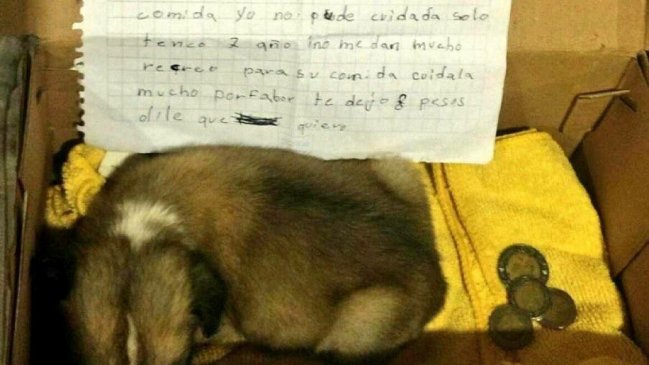 comida yo no pude cuidada solo
tenco 7 año ino me dan mucho
recreo para su comida cuidala
mucho porfabor te dejo 8 pesos
dile que quiero